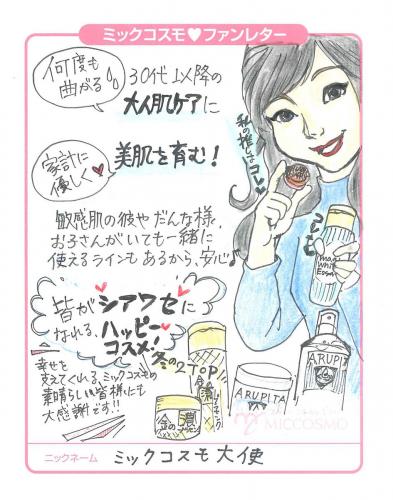 ミックコスモ♥ファンレター
何度も
曲がる
30代以降の
大人肌ケアに
美肌を育む!
家計に
優しく♥
私の推しはコレ♥
敏感肌の彼やだんな様、
お子さんがいても一緒に
使えるラインもあるから、安心♪
コレも
皆がシアワセに
なれる、ハッピー
コスメ!
幸せを
支えてくれる、ミックコスモの
素晴らしい皆様にも
大感謝です!!
冬の2TOP
金の濃
ARUPITA
ARUPITA
MICCOSMO
ニックネーム
ミックコスモ大使